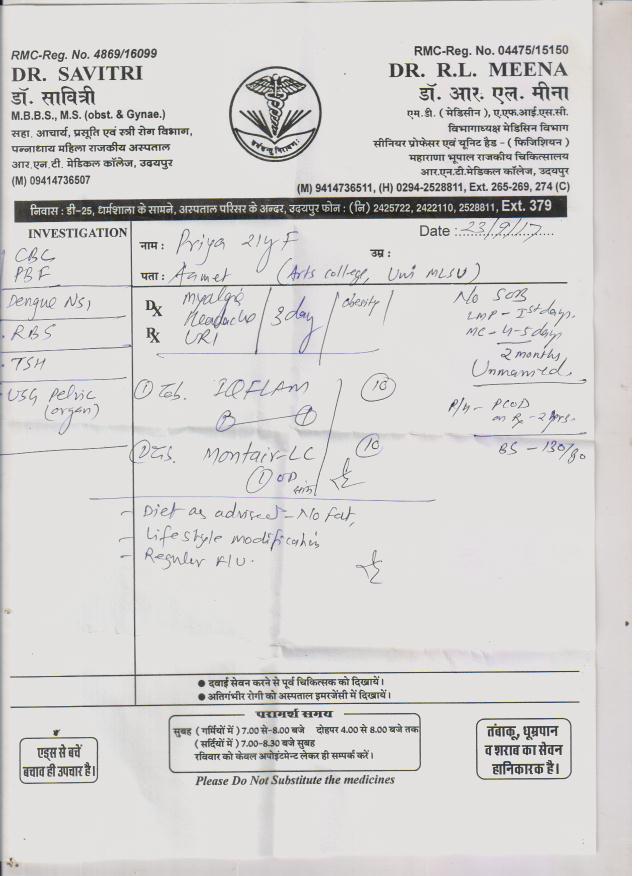 RMC-Reg. No. 4869/16099
DR. SAVITRI
डॉ. सावित्री
M.B.B.S., M.S. (obst. & Gynae.)
सहा. आचार्य, प्रसूति एवं स्त्री रोग विभाग,
पन्नाधाय महिला राजकीय अस्पताल
आर.एन.टी. मेडिकल कॉलेज, उदयपुर
(M) 09414736507
RMC-Reg. No. 04475/15150
DR. R.L. MEENA
डॉ. आर. एल. मीना
एम.डी. ( मेडिसीन ), ए.एफ.आई.एस.सी.
विभागाध्यक्ष मेडिसिन विभाग
सीनियर प्रोफेसर एवं यूनिट हैड - ( फिजिशियन )
महाराणा भूपाल राजकीय चिकित्सालय
आर.एन.टी.मेडिकल कॉलेज, उदयपुर
(M) 9414736511, (H) 0294-2528811, Ext. 265-269, 274 (C)
निवास : डी-25, धर्मशाला के सामने, अस्पताल परिसर के अन्दर, उदयपुर फोन : (नि) 2425722, 2422110, 2528811, Ext. 379
INVESTIGATION
CBC
PBF
Dengue NS1
RBS
TSH
USG Pelvic
(organ)
नाम : Priya 21y F
Date : 23/9/17
उम्र :
पता : Aamet (Arts college, Uni MLSU)
Dx Myalgia
Headache 3 day obesity
Rx URI
No SOB
LMP - Ist days.
MC - 4-5 days
2 months
Unmarried.
P/H - PCOD
on Rx - 2 yrs.
BS - 130/80
① Tab. IQFLAM 10
Tab. Montair-LC 10
① OD
- Diet as advised - No fat,
- Life style modification
- Regular F/U.
● दवाई सेवन करने से पूर्व चिकित्सक को दिखायें।
● अतिगंभीर रोगी को अस्पताल इमरजेंसी में दिखायें।
परामर्श समय
सुबह ( गर्मियों में ) 7.00 से-8.00 बजे दोहपर 4.00 से 8.00 बजे तक
( सर्दियों में ) 7.00-8.30 बजे सुबह
रविवार को केवल अपोइंटमेन्ट लेकर ही सम्पर्क करें।
एड्स से बचें
बचाव ही उपचार है।
तंबाकू, धूम्रपान
व शराब का सेवन
हानिकारक है।
Please Do Not Substitute the medicines